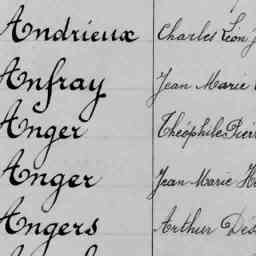 Andrieux Charles Léon J
Anfray Jean Marie
Anger Théophile Pierr
Anger Jean Marie H
Angers Arthur Dés